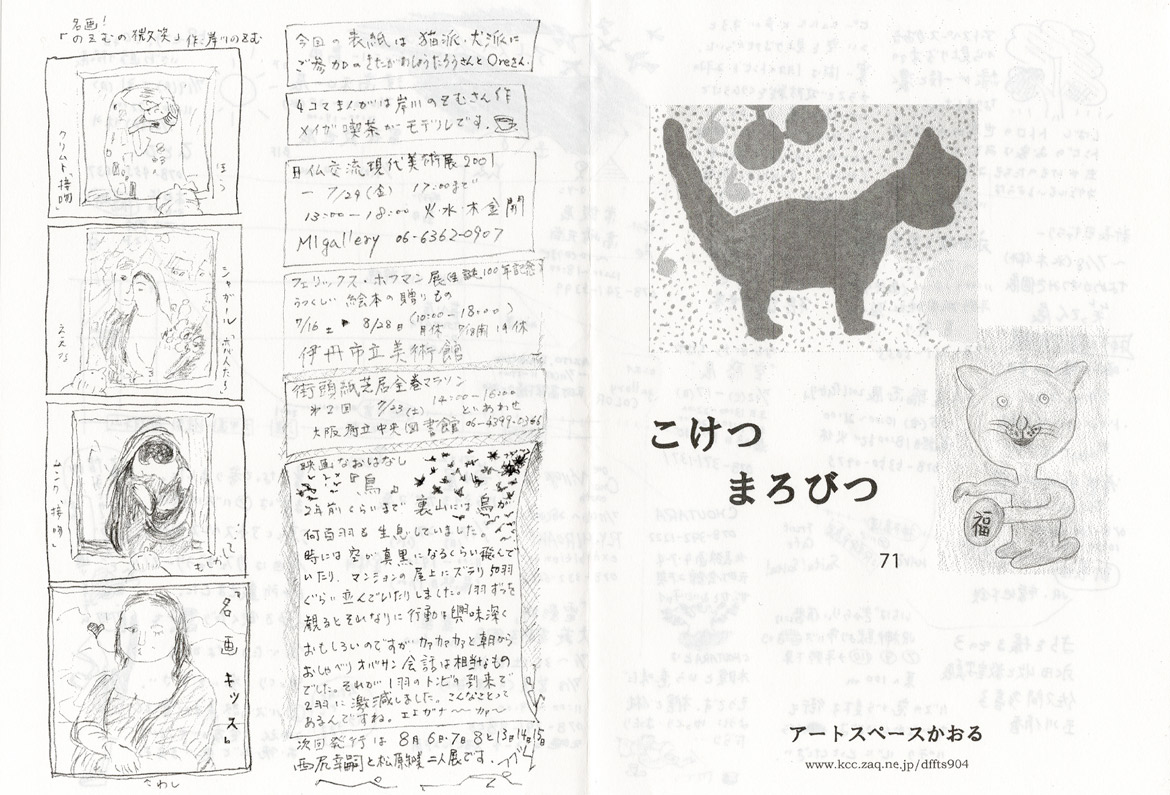 名画!
「のぞむの微笑」作:岸川のぞむ
クリムト「接吻」
ほう
シャガール
ええなぁ
ムンク「接吻」
「名画キッス」
今回の表紙は猫派・犬派に
ご参加のきたがわしょうたろうさんとOreさん
4コマまんがは岸川のぞむさん作
メイガ喫茶がモデルです。
日仏交流現代美術展2001
〜7/29(金) 17:00まで
13:00〜18:00 火・水・木・金開
MIgallery 06-6362-0907
フェリックス・ホフマン展(生誕100年記念)
うつくしい絵本の贈りもの
7/16土▶8/28日(10:00-18:00)
伊丹市立美術館
街頭紙芝居全巻マラソン
第2回 7/23(土) 14:00〜16:00
といあわせ
大阪府立中央図書館 06-4399-0366
映画なおはなし
「鳥」
2年前くらいまで裏山には烏が
何百羽も生息していました。
時には空が真黒になるくらい飛んで
いたり、マンションの屋上にズラリ
ぐらい並んでいたりしました。1羽ずつ
観るとそれなりに行動は興味深く
おもしろいのですがカァカァカァと朝から
おしゃべりオバサン会話は相当なもの
でした。それが1羽のトンビの到来で
2羽に激減しました。こんなことって
あるんですね。
次回発行は8月6日・7日・8と13日14日15日
西尻幸嗣と松原 二人展です。
こけつ
まろびつ
71
福
アートスペースかおる
www.kcc.zaq.ne.jp/dffts904